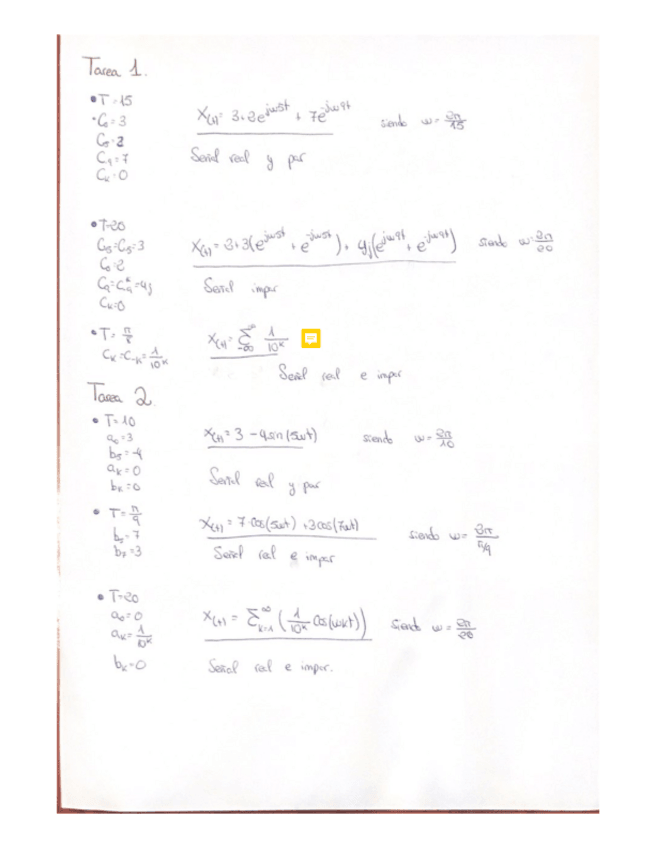 Tarea 1.
• T=15
• C₀=3
C₅=2
C₉=7
Cₖ=0
X(t)= 3+2e^{jω5t} + 7e^{-jω9t} siendo ω=2π/15
Señal real y par
• T=20
C₅=C₅=3
C₀=2
C₉=C₋₉*=4j
Cₖ=0
X(t)= 2+3(e^{jω5t} + e^{-jω5t}) + 4j(e^{jω9t} + e^{-jω9t}) siendo ω=2π/20
Señal impar
• T=π/8
Cₖ=C₋ₖ=1/10ᵏ
X(t)= Σ_{-∞}^{∞} 1/10ᵏ
Señal real e impar
Tarea 2.
• T=10
a₀=3
b₅=-4
aₖ=0
bₖ=0
X(t)= 3-4sin(5ωt) siendo ω=2π/10
Señal real y par
• T=π/9
b₅=7
b₇=3
X(t)= 7·cos(5ωt) +3cos(7ωt) siendo ω=2π/π/9
Señal real e impar
• T=20
a₀=0
aₖ=1/10ᵏ
bₖ=0
X(t) = Σ_{k=1}^{∞} (1/10ᵏ cos(ωkt)) siendo ω=2π/20
Señal real e impar.